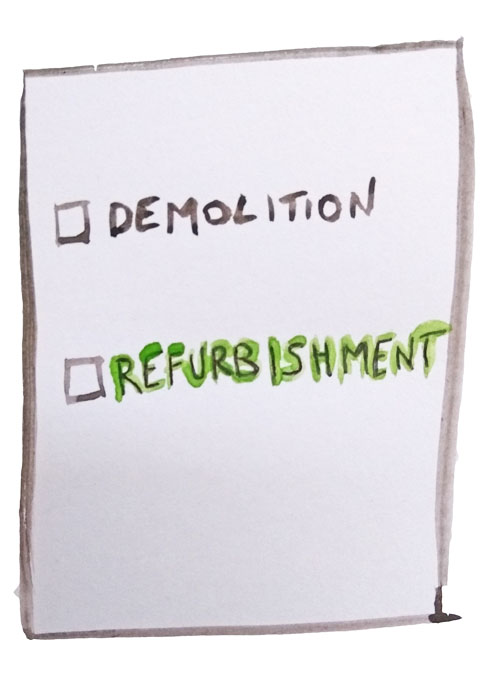 DEMOLITION
REFURBISHMENT